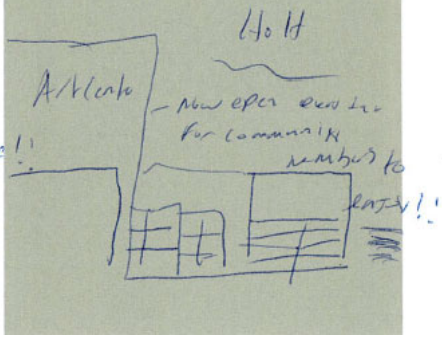 Holt
Art Cente
- Now open
for community
members to
enjoy!!
!!